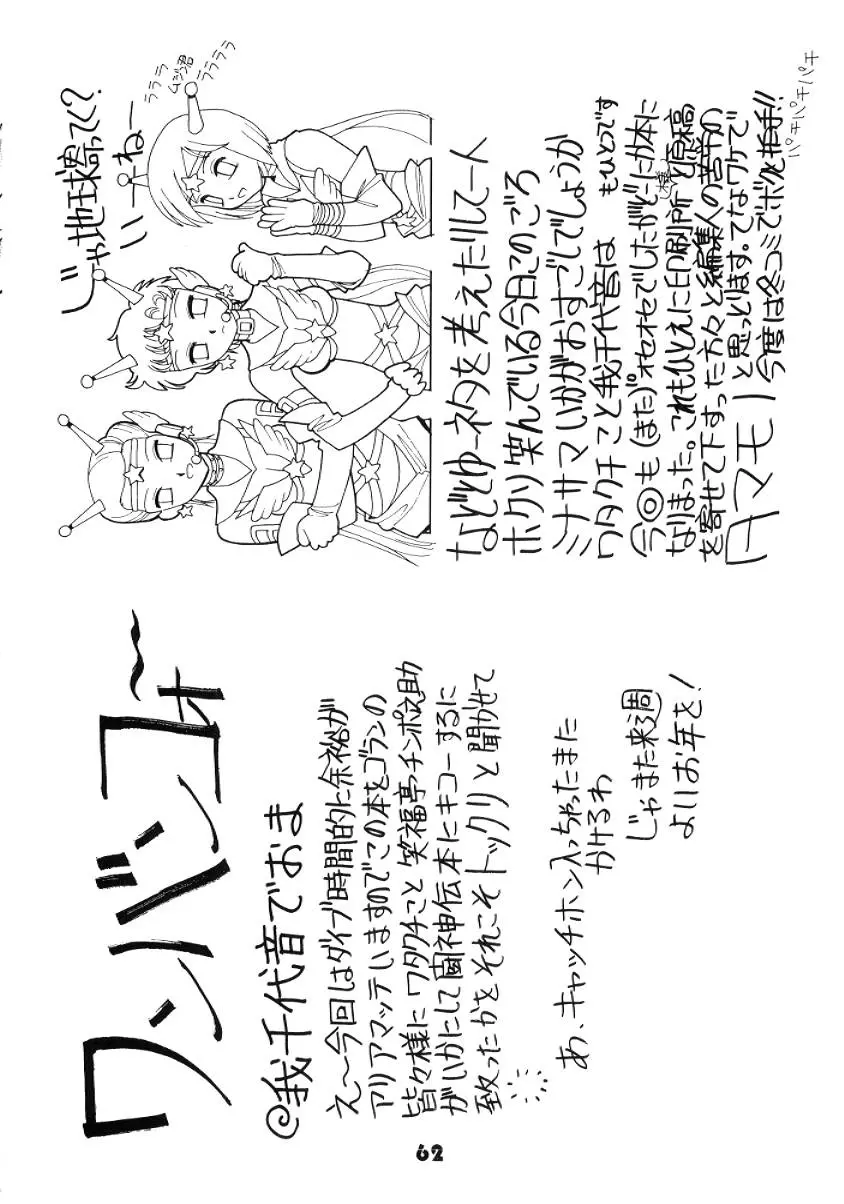 ワンバンコォ〜
@我千代音でおま
え〜今回はダイブ時間的に余裕が
アリアマッテいますのでこの本をゴランの
皆々様にワタクチこと笑福亭チンポ之助
がいかにして闘神伝本にキコーするに
致ったかをそれこそトックリと聞かせて
あ、キャッチホン入っちゃったまた
かけるわ
じゃまた来週
よいお年を!
じゃ地球寄ってく?
いーねー
ラララ
ムジン君
ララララ
などとゆーネタを考えたりして一人
ホクソ笑んでいる今日このごろ
ミナサマいかがおすごしでしょうか
ワタクチこと我千代音は もひとつです
今◎も(また)オセオセでしたがどーにか本に
なりまった。これもひとえに印刷所と原稿
を寄せて下すった方々と編集人の苦労の
タマモノと思っとります。てなワケで
今度は冬コミでボク と握手!!
パチパチパチパチ
62